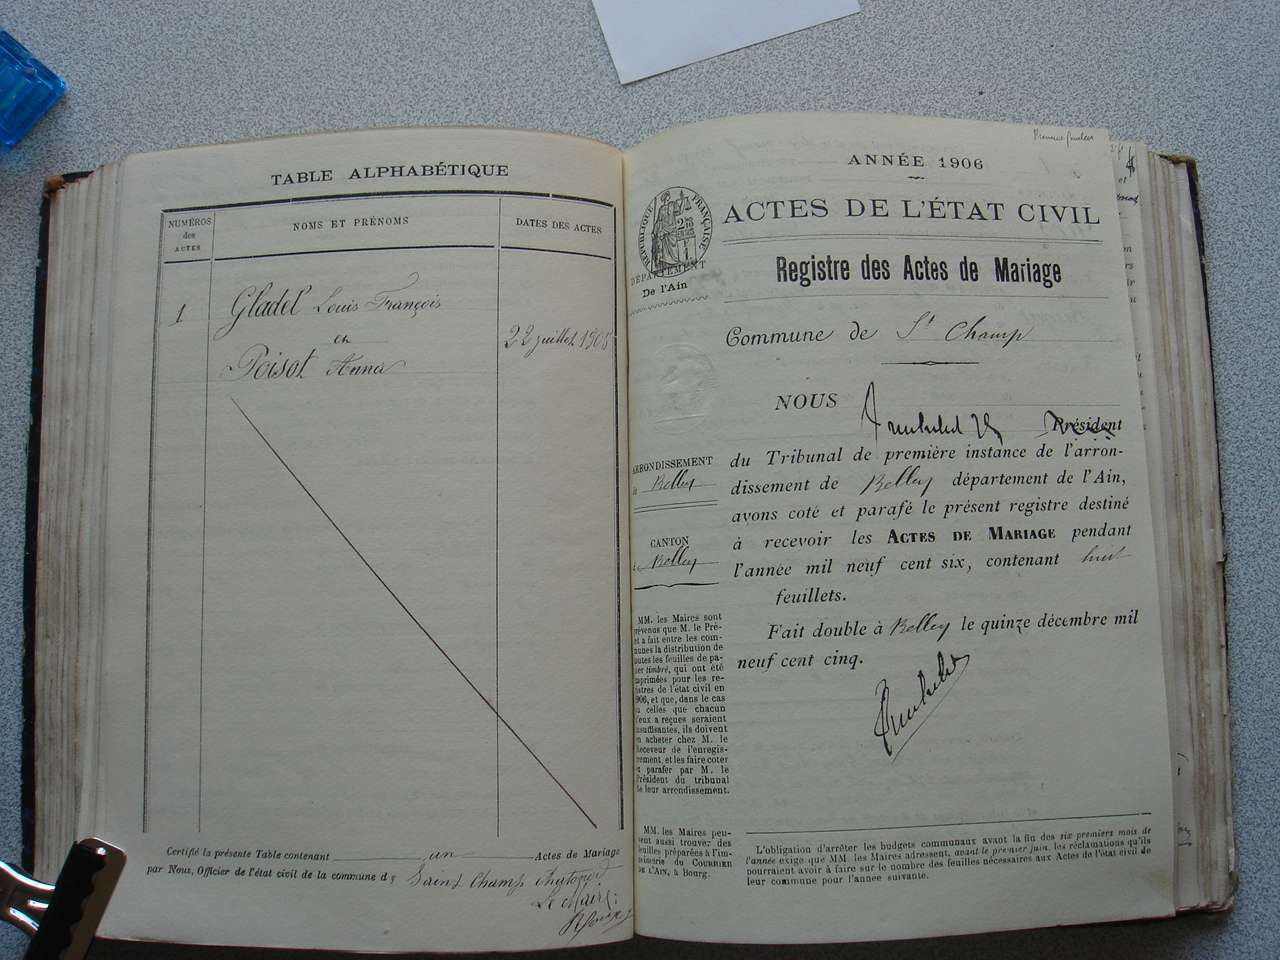 TABLE ALPHABÉTIQUE
NUMÉROS
des
ACTES
NOMS ET PRÉNOMS
DATES DES ACTES
1
Gladel Louis François
en
Poisot Anna
22 juillet 1905
Certifié la présente Table contenant un Actes de Mariage
par Nous, Officier de l'état civil de la commune de Saint Champ
Le Maire:
ANNÉE 1906
RÉPUBLIQUE FRANÇAISE
DÉPARTEMENT
De l'Ain
ACTES DE L'ÉTAT CIVIL
Registre des Actes de Mariage
Commune de St Champ
NOUS
Président
du Tribunal de première instance de l'arron-
dissement de Belley département de l'Ain,
avons coté et parafé le présent registre destiné
à recevoir les ACTES DE MARIAGE pendant
l'année mil neuf cent six, contenant huit
feuillets.
Fait double à Belley le quinze décembre mil
neuf cent cinq.
ARRONDISSEMENT
Belley
CANTON
Belley
MM. les Maires sont
prévenus que M. le Pré-
et a fait entre les com-
munes la distribution de
toutes les feuilles de pa-
pier timbré, qui ont été
imprimées pour les re-
gistres de l'état civil en
1906, et que, dans le cas
où celles que chacun
d'eux a reçues seraient
insuffisantes, ils doivent
en acheter chez M. le
Receveur de l'enregis-
trement, et les faire coter
et parafer par M. le
Président du tribunal
de leur arrondissement.
MM. les Maires peu-
vent aussi trouver des
feuilles préparées à l'im-
primerie du COURRIER
DE L'AIN, à Bourg.
L'obligation d'arrêter les budgets communaux avant la fin des six premiers mois de
l'année exige que MM. les Maires adressent, avant le premier juin, les réclamations qu'ils
pourraient avoir à faire sur le nombre des feuilles nécessaires aux Actes de l'état civil de
leur commune pour l'année suivante.